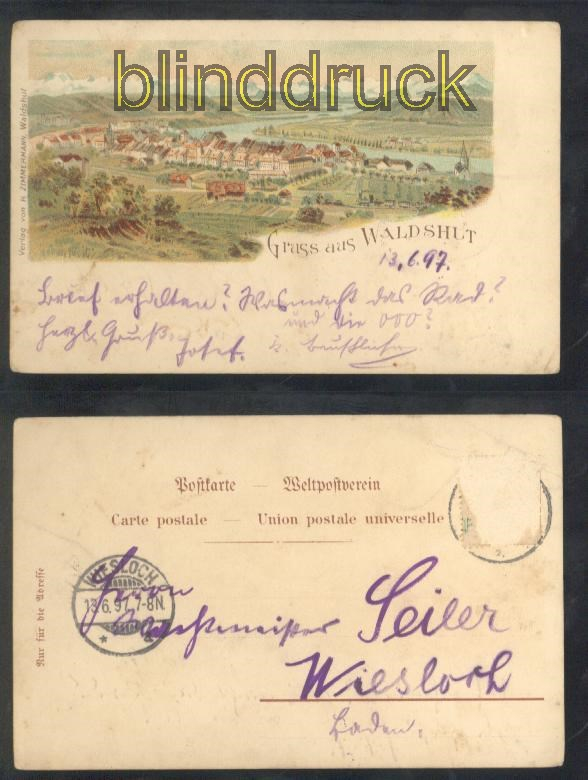 blinddruck
Verlag von H. ZIMMERMANN, Waldshut
Gruss aus WALDSHUT
13.6.97.
Brief erhalten? Was macht das Rad?
und die 000?
herzl. Gruß, Josef.
Postkarte — Weltpostverein
Carte postale — Union postale universelle
Nur für die Adresse
WIESLOCH
13.6.97.7-8N.
Herrn
Seiler
Wiesloch
Baden.